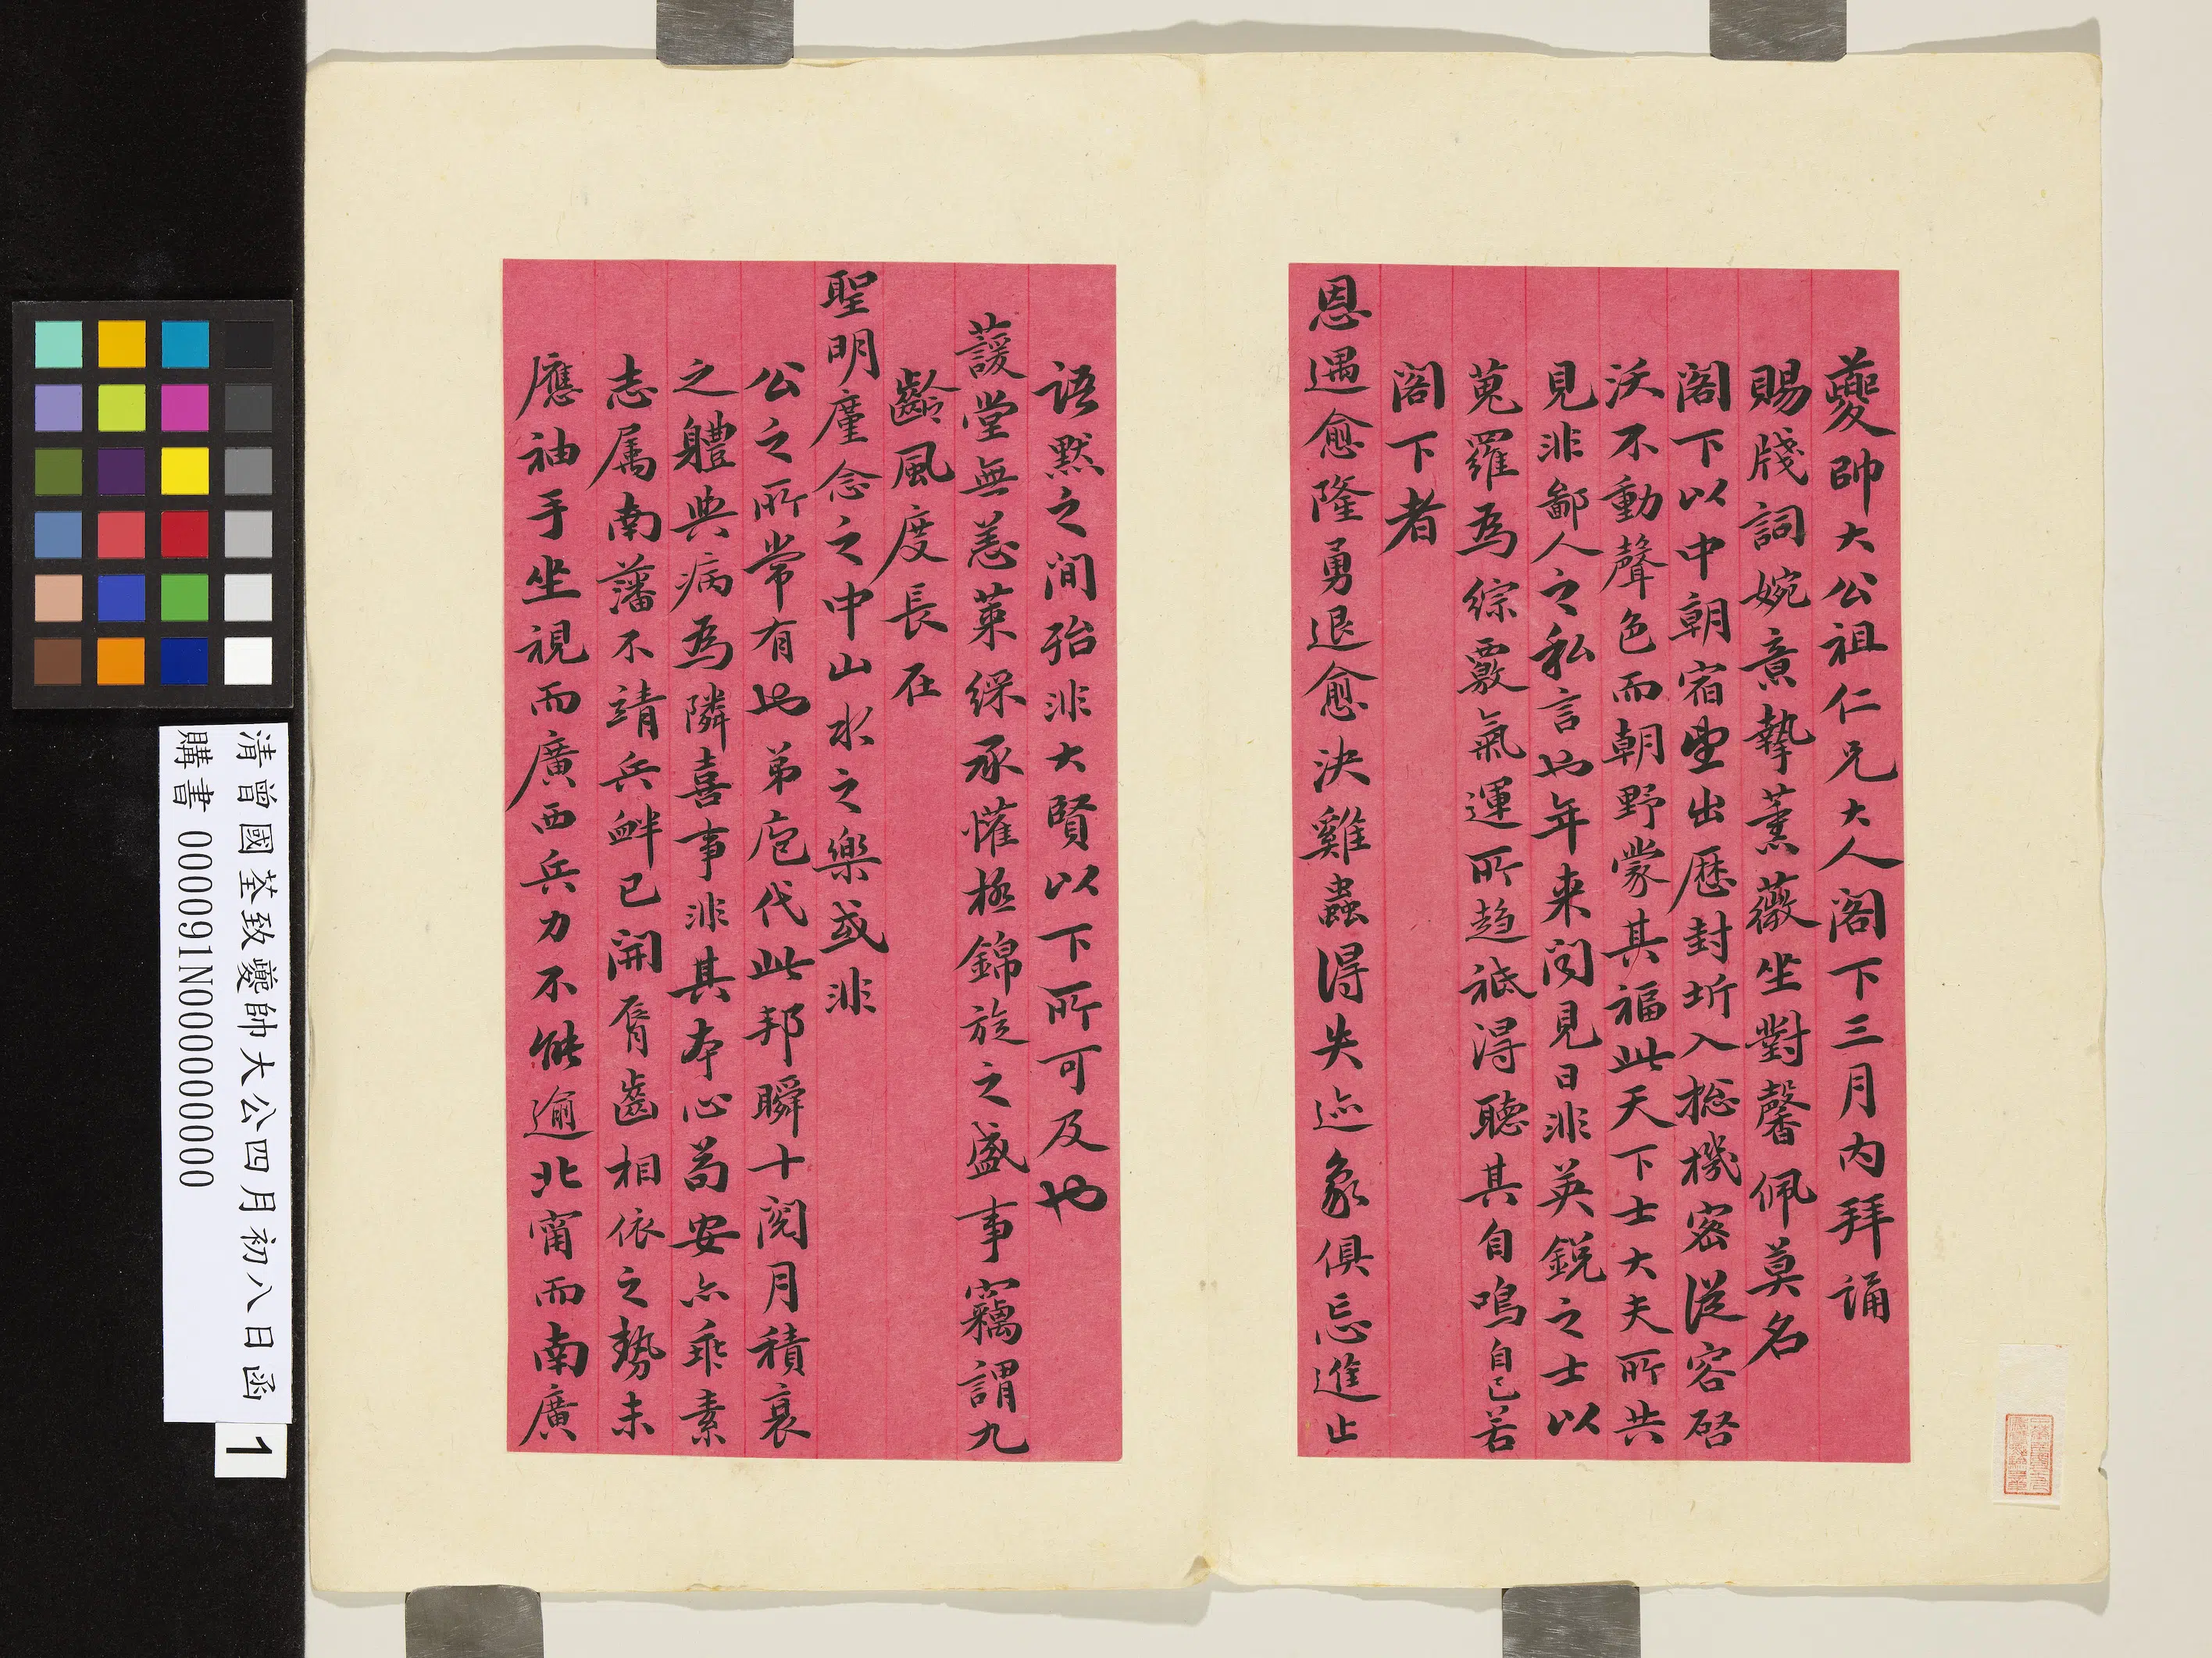 夔帥大公祖仁兄大人閣下三月內拜誦
賜牋詞婉意摯薰薇坐對馨佩莫名
閣下以中朝宿望出歷封圻入總機密從容啓
沃不動聲色而朝野蒙其福此天下士大夫所共
見非鄙人之私言也年来聞見日非英銳之士以
蒐羅為綜覈氣運所趨祗得聽其自鳴自已若
閣下者
恩遇愈隆勇退愈決雞蟲得失迹象俱忘進止
語默之間殆非大賢以下所可及也
萲堂無恙萊綵承懽極錦旋之盛事竊謂九
齡風度長在
聖明廑念之中山水之樂或非
公之所常有也弟庖代此邦瞬十閱月積衰
之軆與病為隣喜事非其本心苟安亦乖素
志属南藩不靖兵衅已開脣齒相依之勢未
應袖手坐視而廣西兵力不能逾北甯而南廣
清曾國荃致夔帥大公四月初八日函
購書 0000091N000000000
1